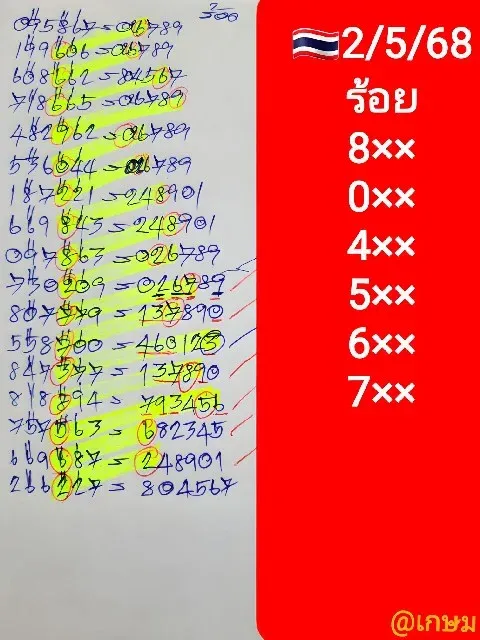 2
500
075867=026789
199606=026789
608662=804567
718665=026789
482962=026789
536044=026789
187221=248901
669843=248901
097863=026789
730209=026789
807579=137890
558500=460123
847377=137890
818894=793456
757563=682345
669687=248901
266227=804567
🇹🇭2/5/68
ร้อย
8××
0××
4××
5××
6××
7××
@เกษม